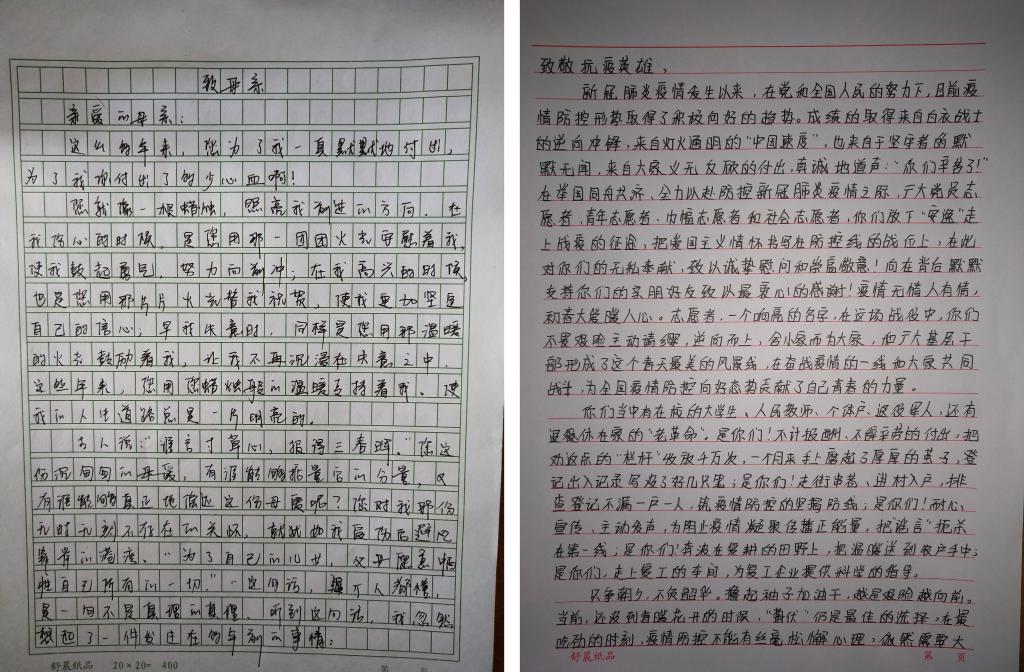 致母亲
亲爱的母亲:
这么多年来,您为了我一直默默地付出,
为了我您付出了多少心血啊!
您就像一根蜡烛,照亮我前进的方向。在
我伤心的时候,是您用那一团团火光安慰着我,
使我鼓起勇气,努力向前冲;在我高兴的时候,
也是您用那片片火光替我祝贺,使我更加坚定
自己的信心;早我失意时,同样是您用那温暖
的火光鼓励着我,让我不再沉湎在失意之中。
这些年来,您用您蜡烛般的温暖支持着我,使
我的人生道路总是一片明亮的。
古人说:“谁言寸草心,报得三春晖。”您这
份沉甸甸的母爱,有谁能够掂量它的分量,又
有谁能够真正地偿还这份母爱呢?您对我那份
无时无刻不存在的关怀,就犹如我最伤后避风
靠岸的港湾。“为了自己的儿女,父母愿意牺
牲自己所有的一切”“这句话,每个人都懂,
是一句不是真理的真理。听到这句话,我忽然
想起了一件发生在多年前的事情:
舒晨纸品 20×20=400 第 页
致敬抗疫英雄,
新冠肺炎疫情发生以来,在党和全国人民的努力下,目前疫
情防控形势取得了积极向好的趋势。成绩的取得来自白衣战士
的逆向冲锋,来自灯火通明的“中国速度”,也来自于坚守者的默
默无闻,来自大家义无反顾的付出,真诚地道声:“你们辛苦了!”
在举国同舟共济、全力以赴防控新冠肺炎疫情之际,广大党员志
愿者、青年志愿者、巾帼志愿者和社会志愿者,你们放下“安逸”走
上战疫的征途,把爱国主义情怀书写在防控线的战位上,在此
对你们的无私奉献,致以诚挚慰问和崇高敬意!向在背后默默
支持你们的亲朋好友致以最衷心的感谢!疫情无情人有情,
初春大爱暖人心。志愿者,一个响亮的名字,在这场战役中,你们
不畏艰险主动请缨,逆向而上,舍小家而为大家,和广大基层干
部形成了这个春天最美的风景线,在奋战疫情的一线和大家共同
战斗,为全国疫情防控向好态势贡献了自己青春的力量。
你们当中有在校的大学生、人民教师、个体户、退役军人,还有
退役休在家的“老革命”。是你们!不计报酬、不辞辛劳的付出,把
劝返点的“栏杆”收放千万次,一个月来手上磨起了厚厚的茧子,登
记出入记录写没了好几只笔;是你们!走街串巷、进村入户,排
查登记不漏一户一人,筑疫情防控的坚固防线;是你们!耐心
宣传、主动发声,为阻止疫情凝聚传播正能量,把“谣言”扼杀
在第一线;是你们!奔波在复耕的田野上,把温暖送到农户手中;
是你们,走上复工的车间,为复工企业提供科学的指导。
只争朝夕,不负韶华。撸起袖子加油干,越是艰险越向前。
当前,还没到春暖花开的时候,“蛰伏”仍是最佳的选择,在最
吃劲的时刻,疫情防控不能有丝毫松懈心理,依然需要大
舒晨纸品 第 页